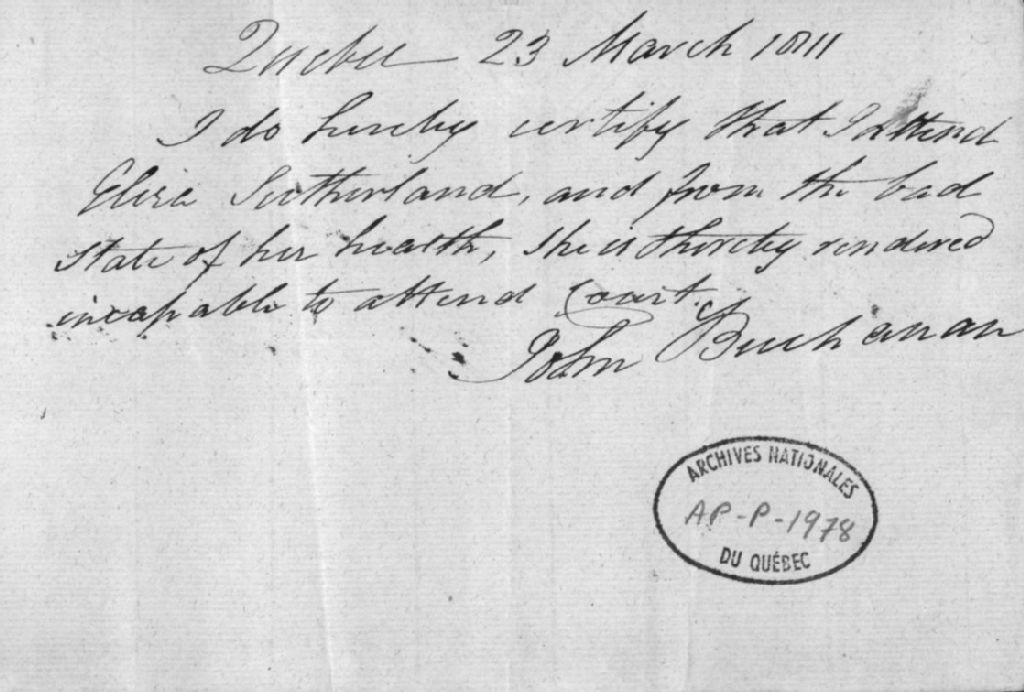 Quebec 23 March 1811
I do hereby certify that I attend
Eliza Sutherland, and from the bad
state of her health, she is thereby rendered
incapable to attend Court.
John Buchanan
ARCHIVES NATIONALES
AP-P-1978
DU QUÉBEC